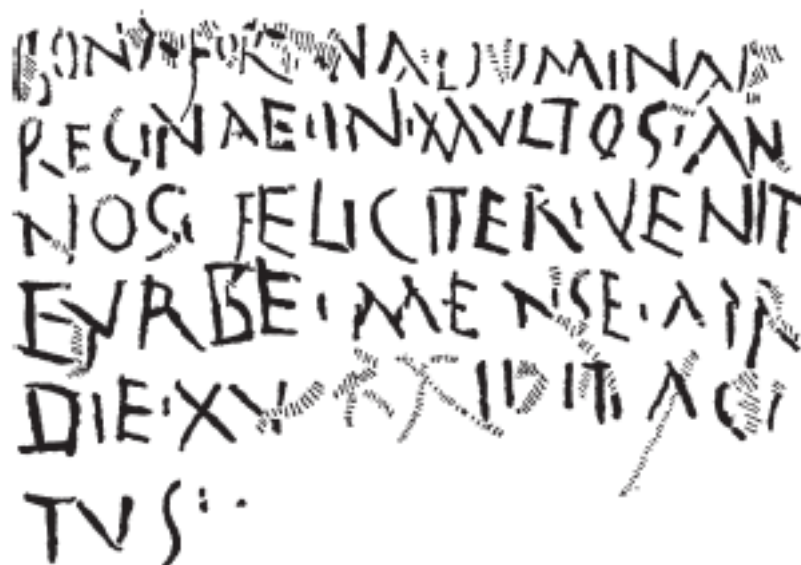 BONA FORTVNA
REGINAE · IN · MVLTOS · AN
NOS · FELICITER · VENIT
E VRBE · MENSE · APR
DIE · XV TACI
TVS :·